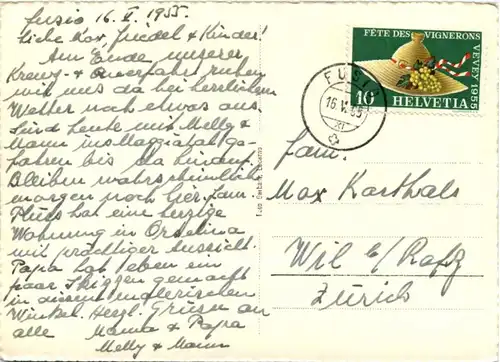 Fusio 16. V. 1955.
Liebe Max, Friedel & Kinder!
Am Ende unserer
Kreuz- & Querfahrt ruhen
wir uns da bei herrlichem
Wetter noch etwas aus.
Sind heute mit Melly &
Mann ins Maggiatal ge-
fahren bis da hinauf.
Bleiben wahrscheinlich
morgen noch hier. Fam.
hat eine herzige
Wohnung in Orselina
mit prächtiger Aussicht.
Papa hat eben ein
paar Skizzen gemacht
in diesem malerischen
Winkel. Herzl. Grüsse an
alle Mama & Papa
Melly & Mann
FÊTE DES VIGNERONS
VEVEY 1955
10 HELVETIA
FUSIO
16.V.55
Fam.
Max Karthals
Wil b/Rafz
Zürich